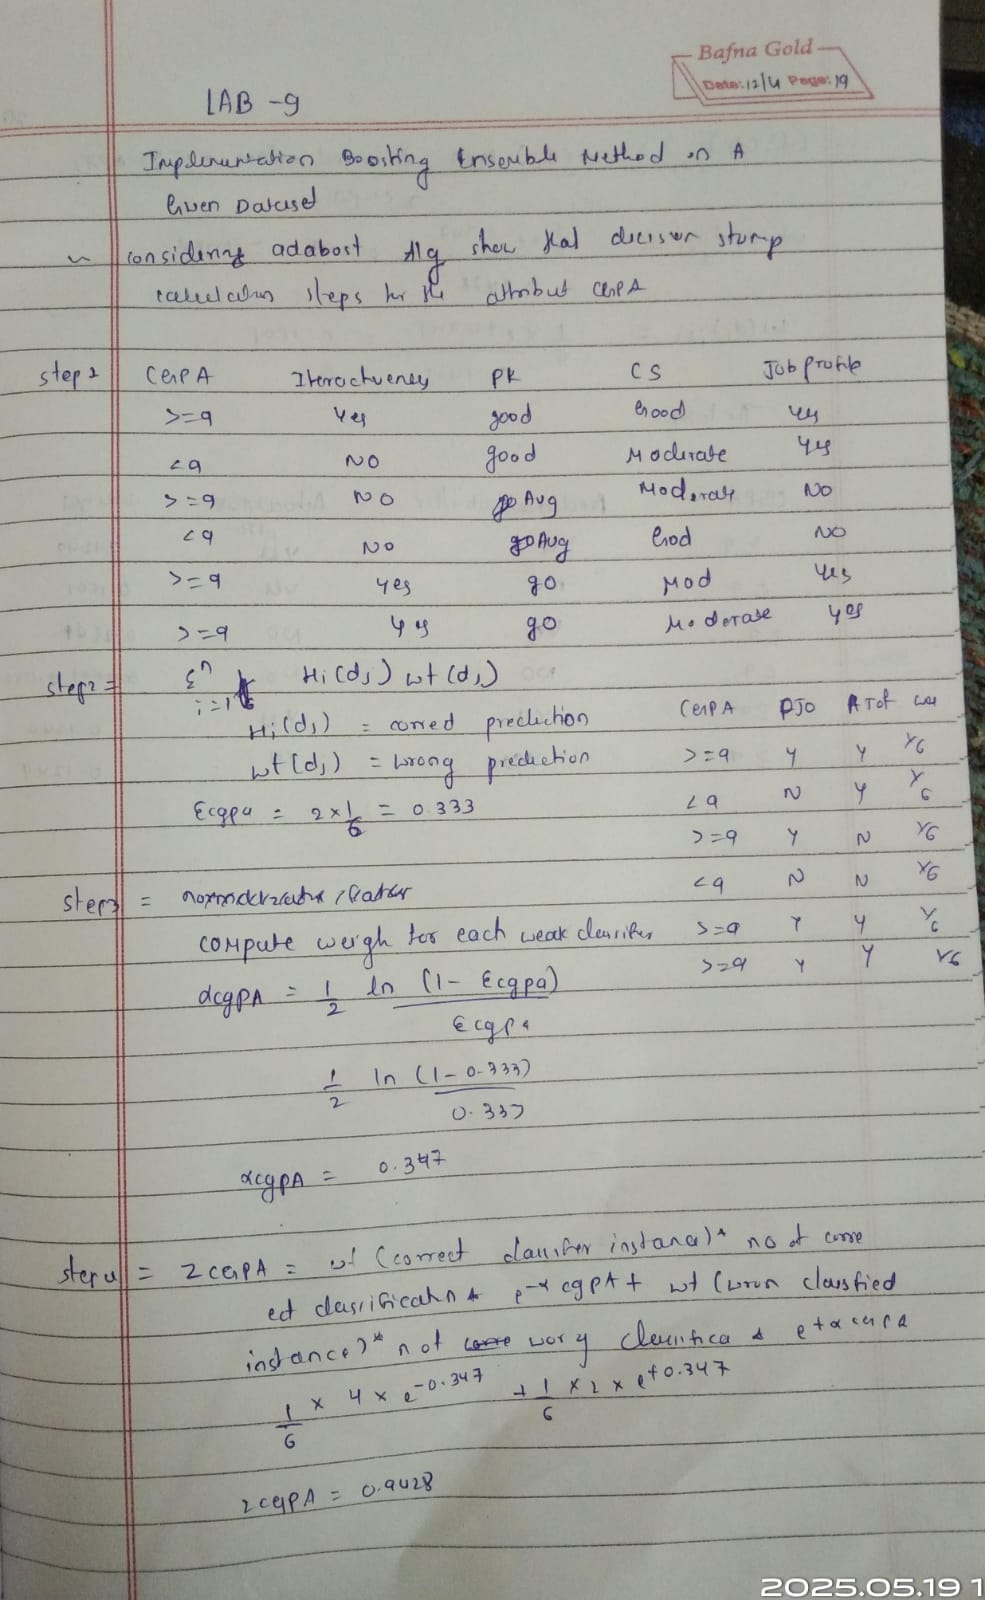 Bafna Gold
Date: 12/4 Page: 19
LAB -9
Implementation Boosting Ensemble Method on A
Given Dataset
considering adabost Alg show that decision stump
calculation steps for the attribut CGPA
step 1 CGPA Iteractveness PK CS Job profile
>=9 Yes good Good Yes
<9 NO good Moderate Yes
>=9 NO Avg Moderate NO
<9 NO Avg Good NO
>=9 yes go Mod Yes
>=9 Yes go Moderate Yes
step 2 = Σ^n i=1 Hi(dj) wt(dj)
Hi(dj) = corred prediction
wt(dj) = wrong prediction
Ecgpa = 2 × 1/6 = 0.333
CGPA PJO A Tof wei
>=9 Y Y 1/6
<9 N Y 1/6
>=9 Y N 1/6
<9 N N 1/6
>=9 Y Y 1/6
>=9 Y Y 1/6
step 3 =
compute weigh for each weak classifier
αcgpA = 1/2 ln (1- Ecgpa) / Ecgpa
1/2 ln (1-0.333) / 0.333
αcgpA = 0.347
step 4 = ZCGPA = wt (correct classifier instance)* no of corre
ect classification * e^-α cgpA + wt (wron classfied
instance)* not wory classifica * e^+α CGPA
1/6 × 4 × e^-0.347 + 1/6 × 2 × e^+0.347
ZCGPA = 0.9428
2025.05.19 1